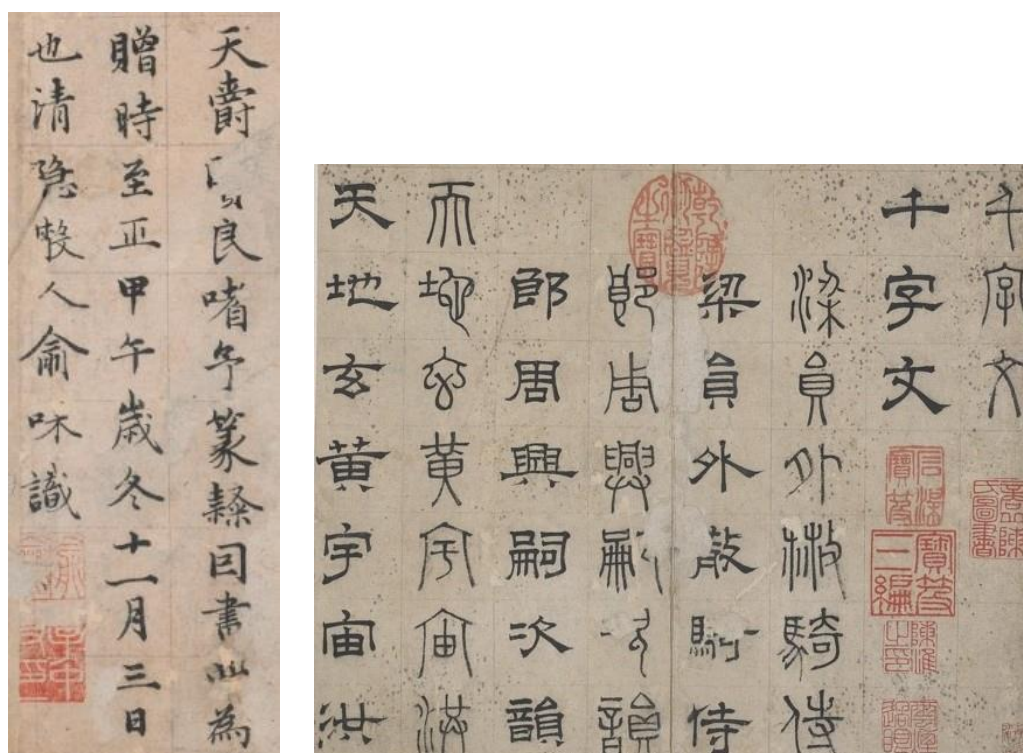 天爵良嗜予篆隸因書此為
贈時至正甲午歲冬十一月三日
也清隱散人俞咊識
千字文
千字文
梁員外散騎侍
梁員外散騎侍
郎周興嗣次韻
郎周興嗣次韻
天地玄黃宇宙洪
天地玄黃宇宙洪
石渠寶笈
寶笈三編